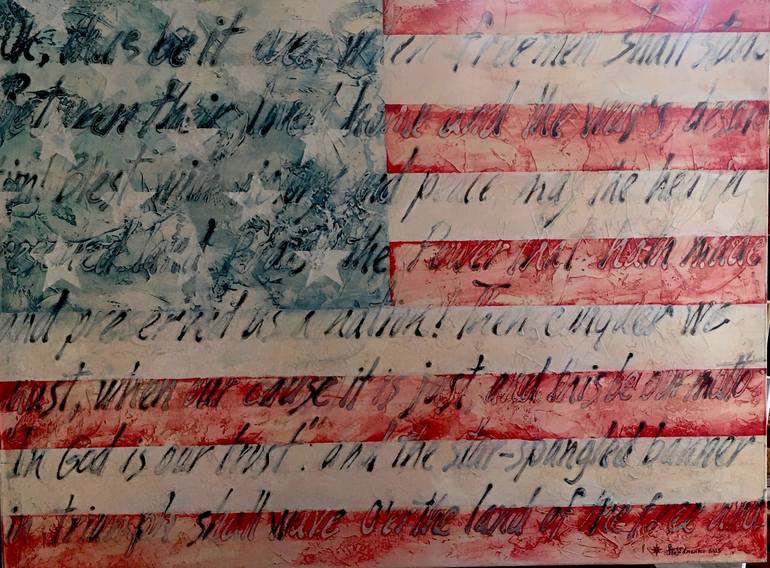 Oh, thus be it ever, when freemen shall stand
Between their loved home and the war's deso
tion! Blest with victory and peace may the heav'n
rescued land Praise the Power that hath made
and preserved us a nation! Then conquer we
must, when our cause it is just, and this be our motto
"In God is our trust". and the star-spangled banner
in triumph shall wave O'er the land of the free and